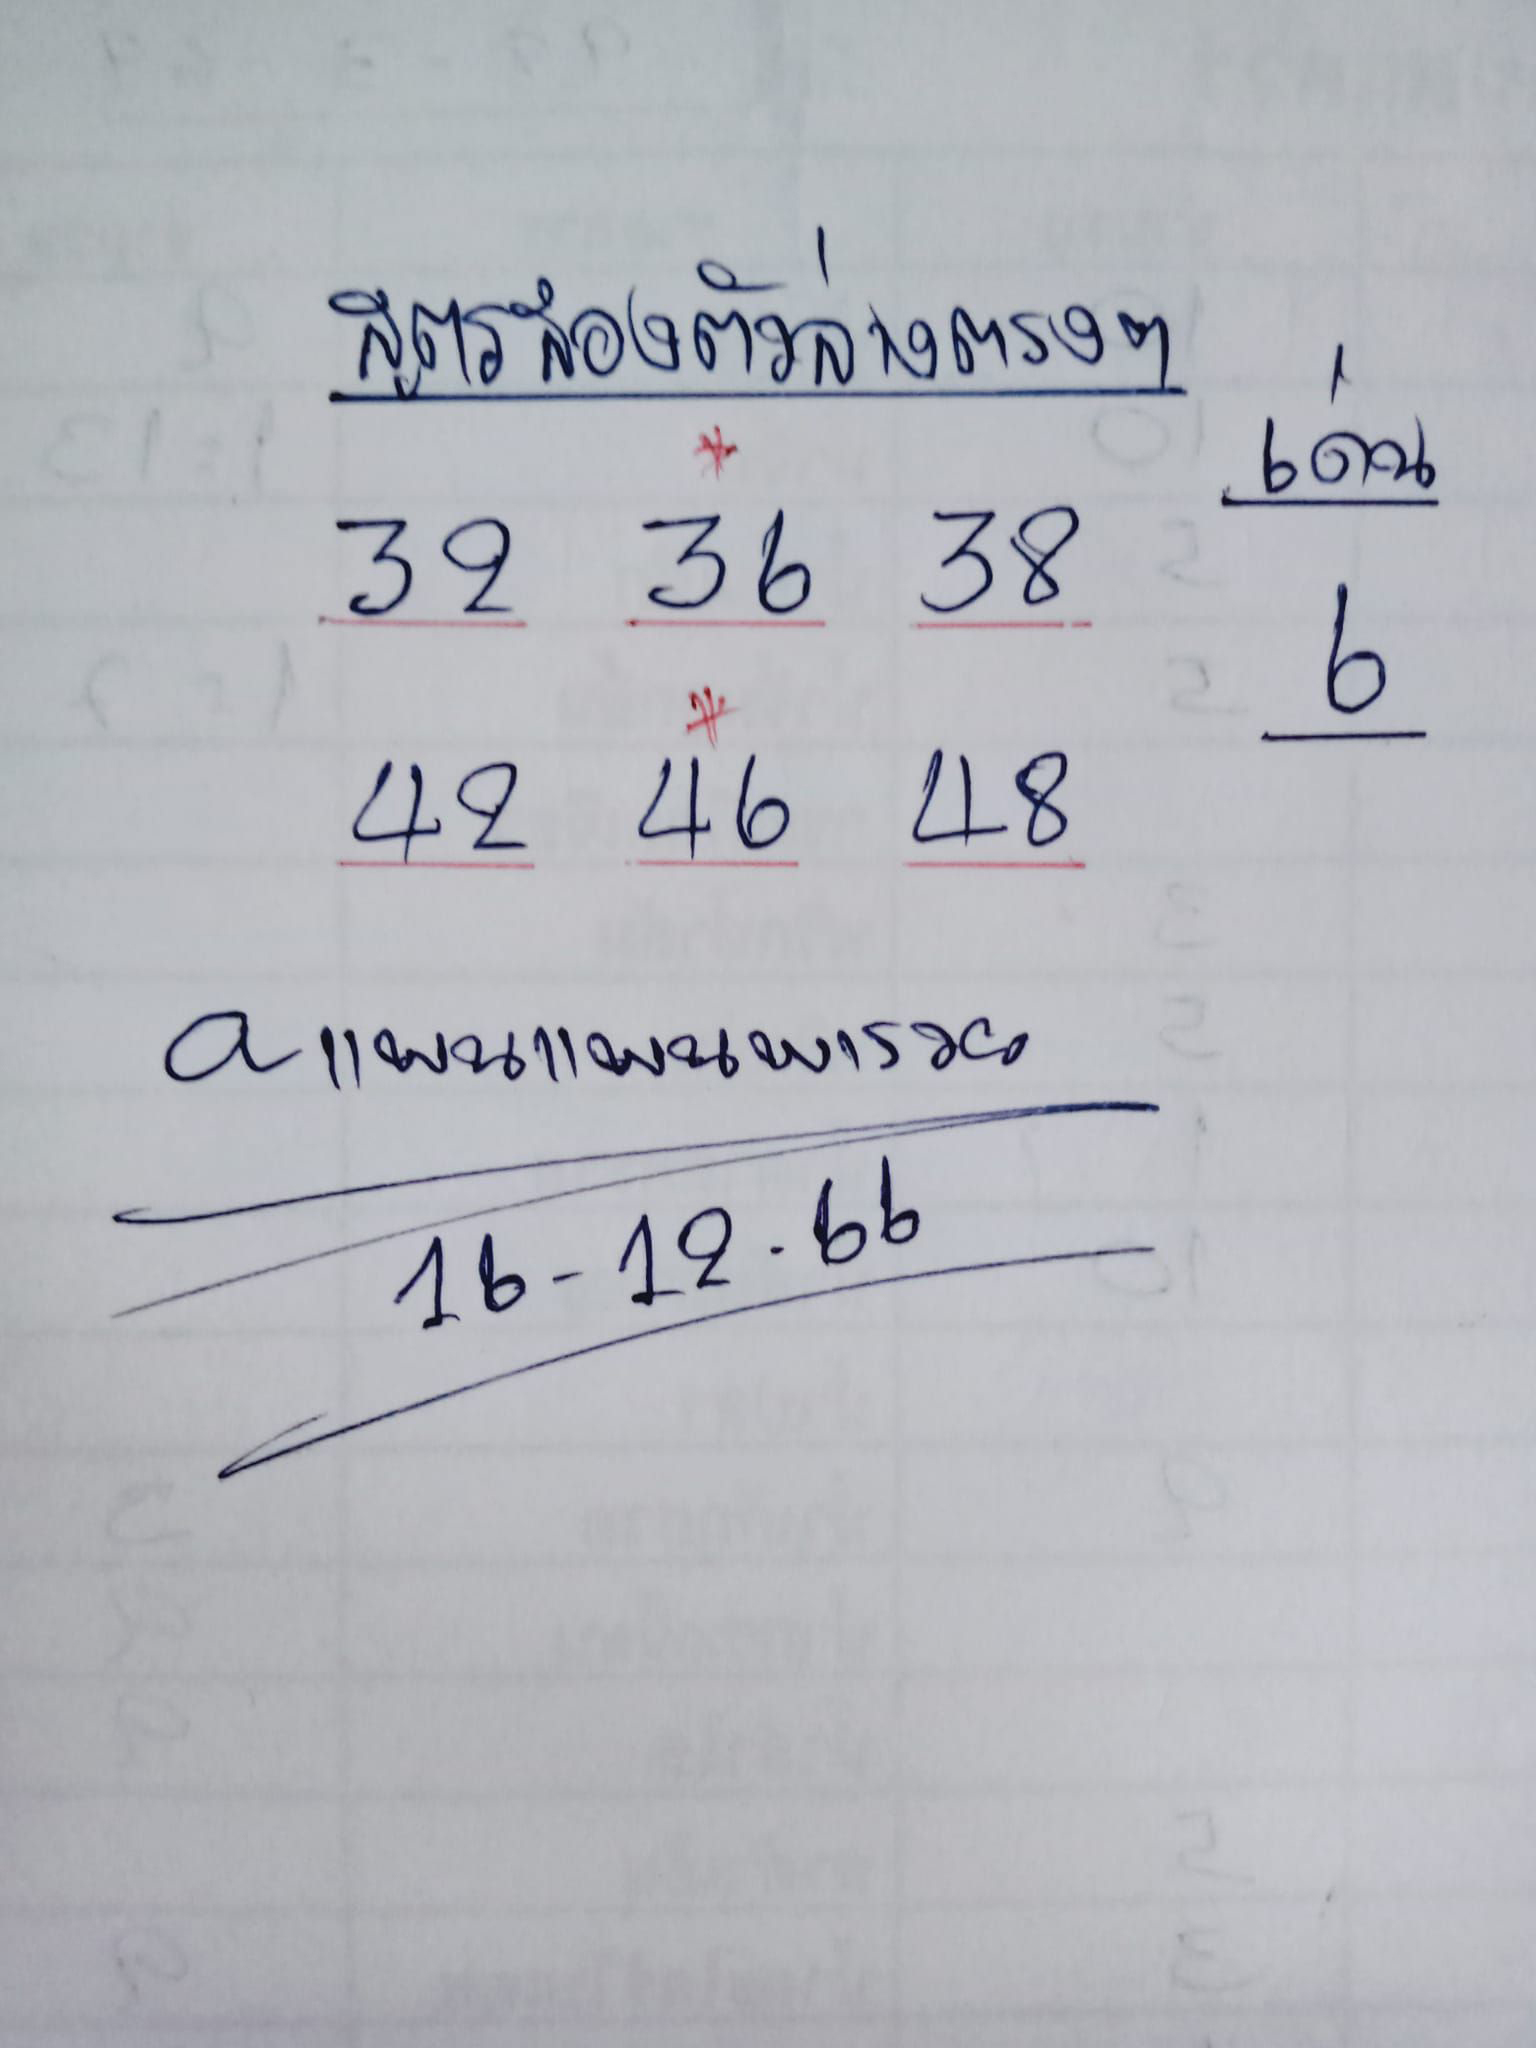 สูตรสองตัวล่างตรงๆ
เด่น
32 36 38
6
42 46 48
aแพนแพนพารวย
16-12.66